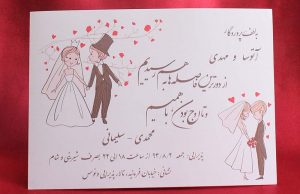 با لطف پروردگار
آتوسا و مهدی
از دورترین فاصله‌ها به هم رسیدیم
و تا اوج بودن با همیم
محمدی - سلیمانی
پذیرایی: جمعه ۹۳/۸/۲ از ساعت ۱۸ الی ۲۲ بصرف شیرینی و شام
نشانی: خیابان فرمانیه، تالار پذیرایی